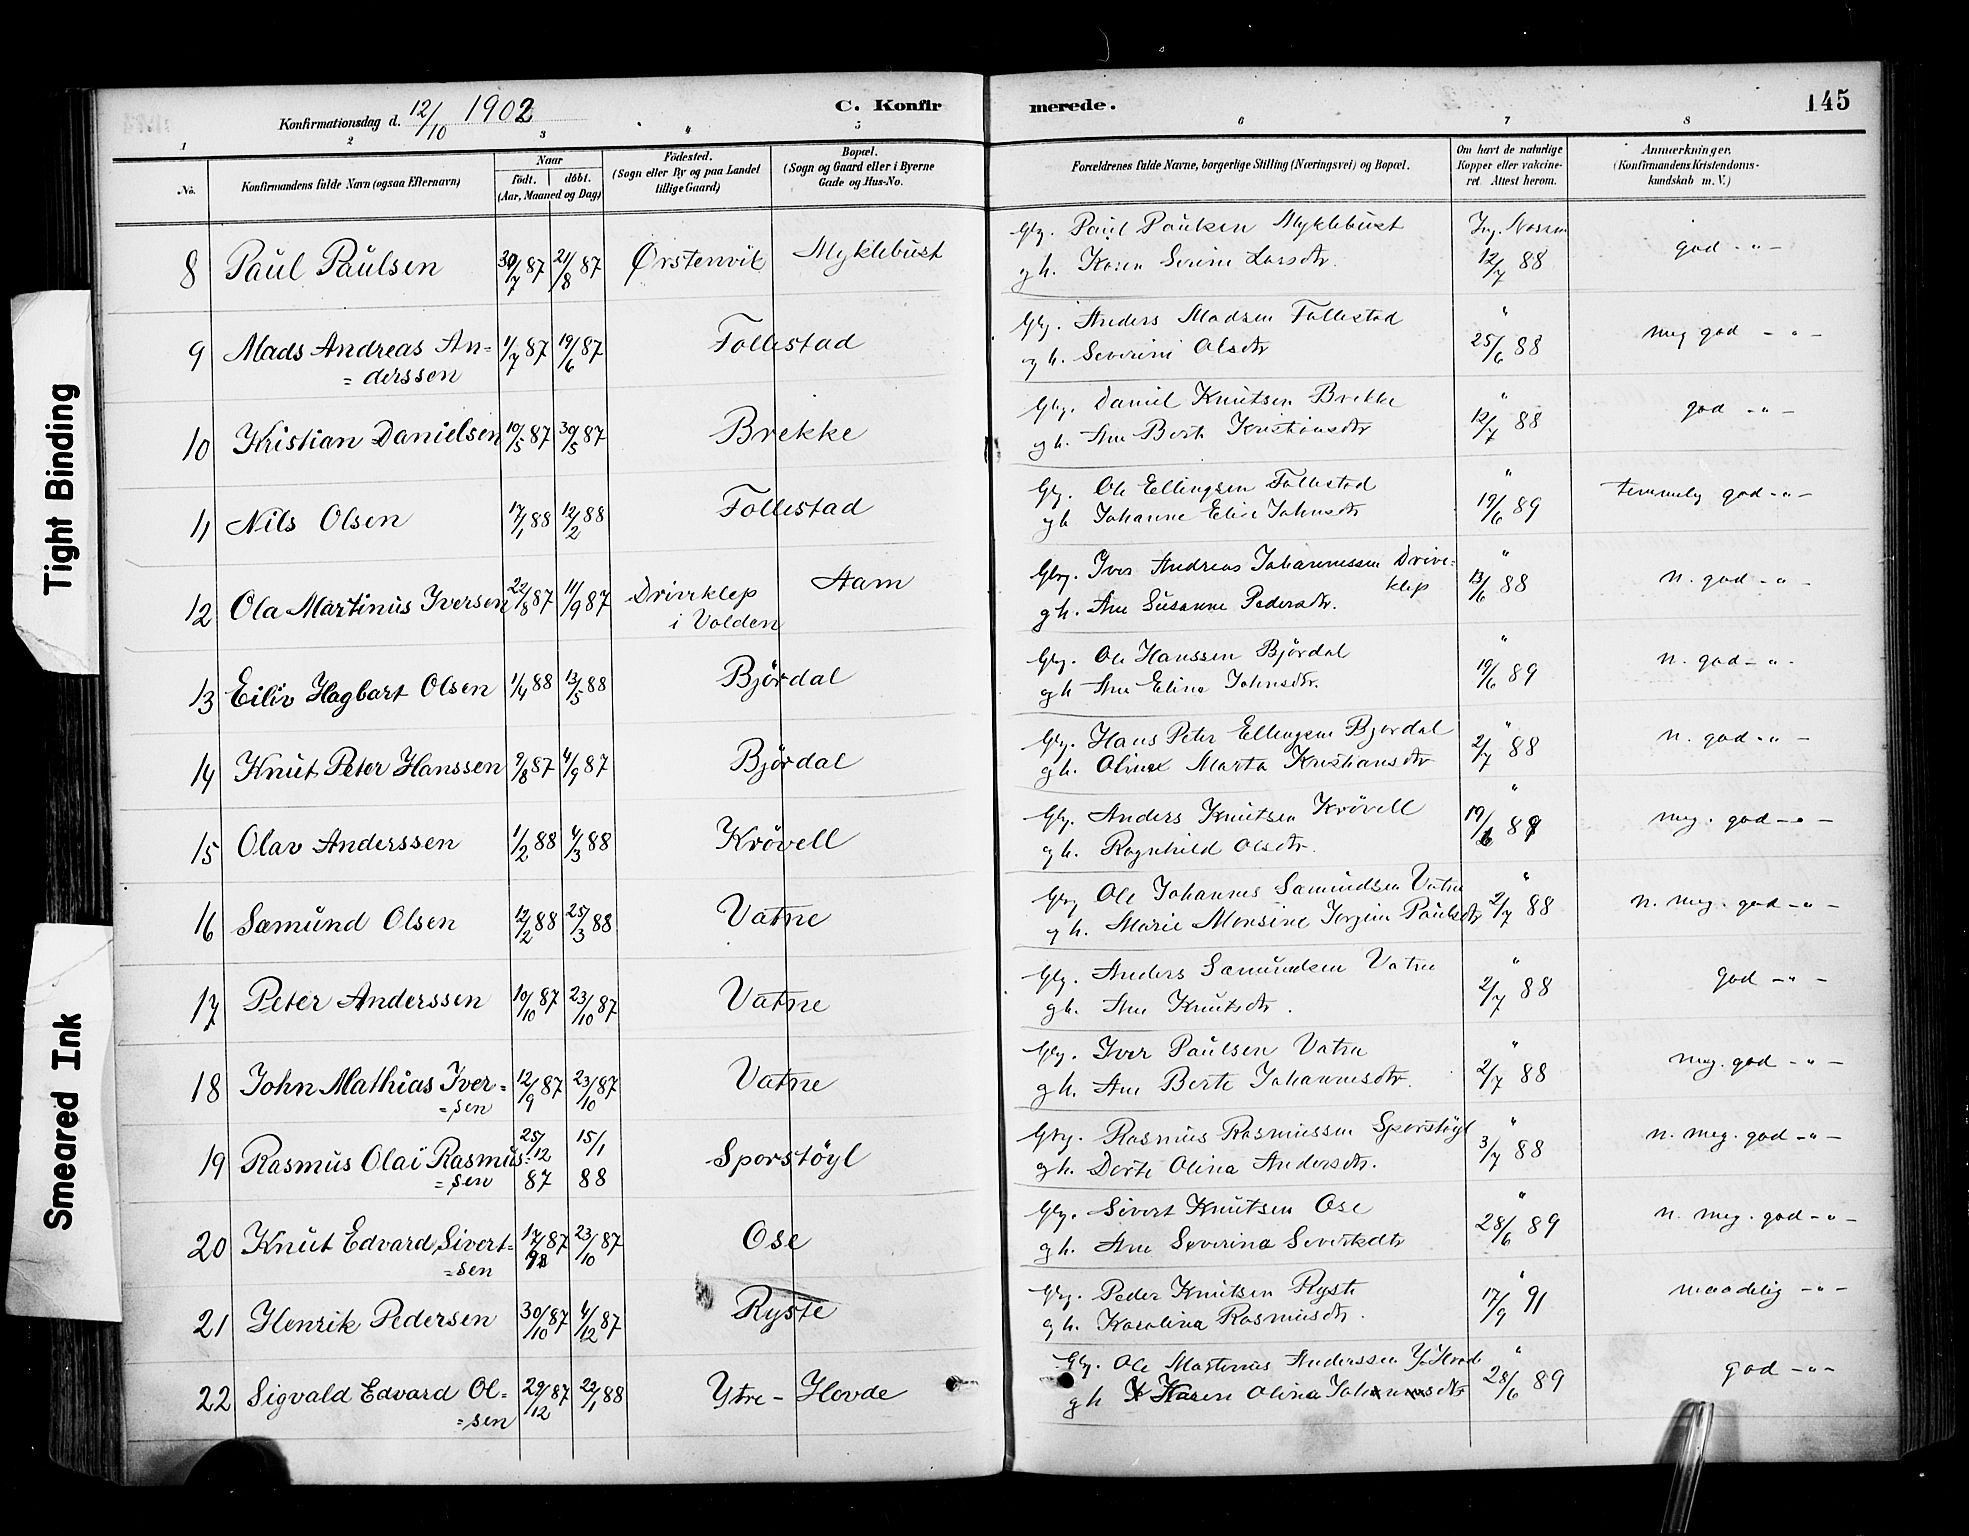 Konfirmationsdag d. 12/10 1902
C. Konfirmerede.
145
1 2 3 4 5 6 7 8
No.
Konfirmandens fulde Navn (ogsaa Efternavn)
Naar
födt. döbt.
(Aar, Maaned og Dag)
Födested.
(Sogn eller By og paa Landet tillige Gaard)
Bopæl.
(Sogn og Gaard eller i Byerne Gade og Hus-No.
Forældrenes fulde Navne, borgerlige Stilling (Næringsvei) og Bopæl.
Om havt de naturlige Kopper eller vakcineret. Attest herom.
Anmærkninger.
(Konfirmandens Kristendomskundskab m. V.)
8 Paul Paulsen 30/7 87 21/8 87 Ørstenvik Myklebust
Gbr. Paul Paulsen Myklebust
gh. Karen Serine Larsdtr. 12/7 88 god -"-
9 Mads Andreas An= 1/7 87 19/6 87 Follestad
= derssen
Gbr. Anders Madsen Follestad "
gh. Severine Olsdtr 25/6 88 meg god -"-
10 Kristian Danielsen 10/5 87 30/5 87 Brekke
Gbr. Daniel Knutsen Brekke "
gh. Ane Berte Kristiansdtr 12/7 88 god -"-
11 Nils Olsen 17/1 88 12/2 88 Follestad
Gbr. Ole Ellingsen Follestad "
gh Johanne Elise Johnsdtr 19/6 89 temmelig god -"-
12 Ola Martinus Iversen 22/8 87 11/9 87 Driveklep i Volden Aam
Gbr. Iver Andreas Johannessen Drive= "
klep
gh. Ane Susanne Pedersdtr. 13/6 88 n. god -"-
13 Eiliv Hagbart Olsen 1/4 88 13/5 88 Björdal
Gbr. Ole Hanssen Björdal "
gh Ane Elina Johnsdtr. 19/6 89 n. god -"-
14 Knut Peter Hanssen 9/8 87 4/9 87 Björdal
Gbr. Hans Peter Ellingsen Bjordal "
gh. Oline Marta Kristiansdtr 2/7 88 n. god -"-
15 Olav Anderssen 1/2 88 4/3 88 Krövell
Gbr. Anders Knutsen Krövell "
gh. Ragnhild Olsdtr. 19/6 89 meg. god -"-
16 Sæmund Olsen 12/2 88 25/3 88 Vatne
Gbr Ole Johannes Sæmundsen Vatne "
gh. Marie Monsine Jorgine Paulsdtr 2/7 88 n. meg. god -"-
17 Peter Anderssen 10/10 87 23/10 87 Vatne
Gbr. Anders Sæmundsen Vatne "
gh. Ane Knutsdtr. 2/7 88 god -"-
18 John Mathias Iver= 12/9 87 23/10 87 Vatne
=sen
Gbr. Iver Paulsen Vatne "
gh. Ane Berte Johannesdtr. 2/7 88 meg. god -"-
19 Rasmus Olai Rasmus= 25/12 87 15/1 88 Sporstöyl
=sen
Gbr. Rasmus Rasmussen Sporstöyl "
gh. Dorte Olina Andersdtr. 3/7 88 n. meg. god -"-
20 Knut Edvard Sivert= 17/9 87 23/10 87 Ose
=sen
Gbr. Sivert Knutsen Ose "
gh. Ane Severina Severtsdtr 28/6 89 n. meg. god -"-
21 Henrik Pedersen 30/10 87 4/12 87 Ryste
Gbr. Peder Knutsen Ryste "
gh. Karolina Rasmusdtr. 17/9 91 maadelig -"-
22 Sigvald Edvard Ol= 29/12 87 22/1 88 Ytre - Hovde
=sen
Gbr. Ole Martinus Anderssen Y. Hovde "
gh Karen Olina Johansdtr 28/6 89 god -"-
Tight Binding
Smeared Ink